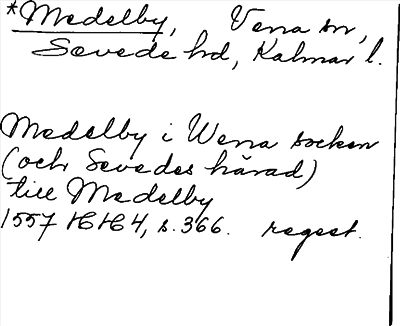 *Medelby, Vena sn,
Sevede hd, Kalmar l.
Medelby i Wena socken
(och Sevedes härad)
till Medelby
1557 HH 4, s. 366. regest.